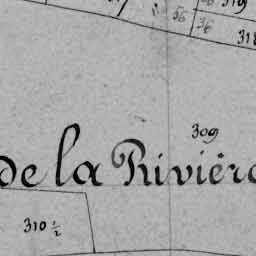 319
56 36 318
309
de la Rivière
310 ½